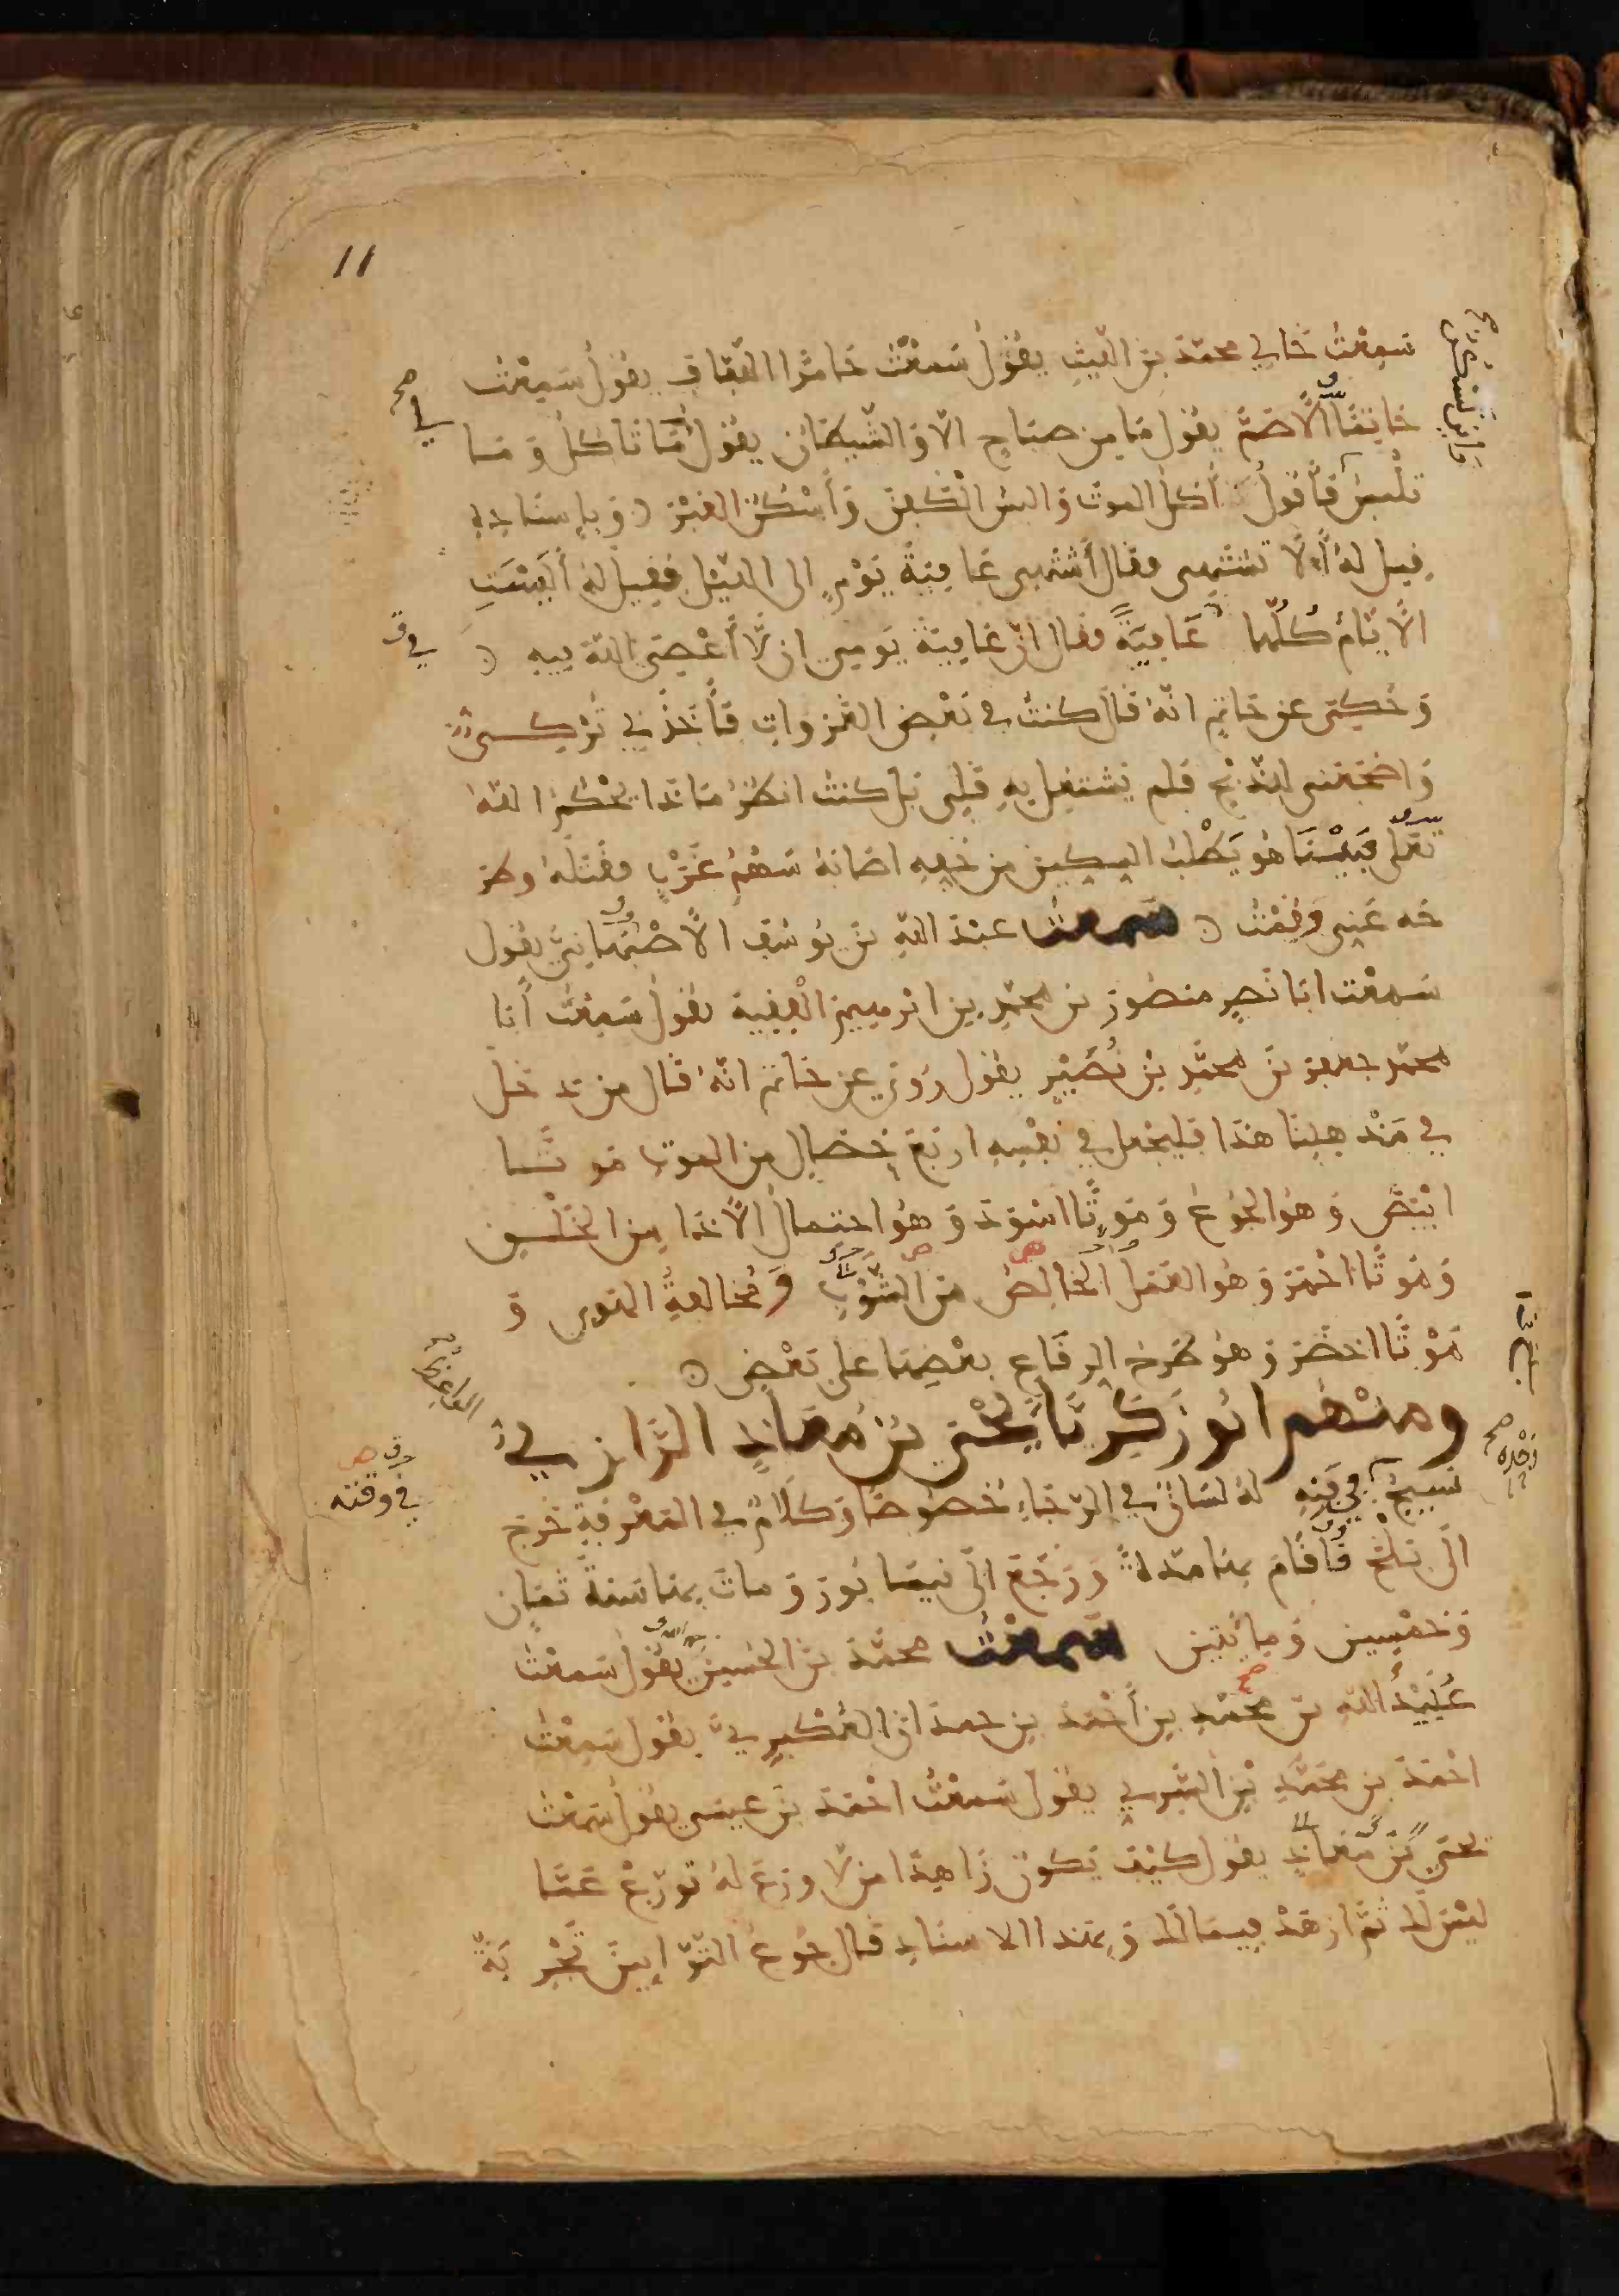 11
سَمِعْتُ خَالِي محمّدَ بنَ اللّيثِ يقُولُ سَمعْتُ حَامدًا اللّفّافَ يقولُ سَمِعْتُ
حَاتِمًا الأَصَمَّ يقول مَا من صبَاحٍ الّا وَالشّيطَانُ يقُولُ لي مَا تَأكلُ وَمَا
تلْبسُ وأين تسْكن فَأَقولُ أكلُ الموتَ وَالبسُ الْكَفنَ وَأَسْكُنُ القَبْرَ وَبإسنَادِهِ
قيل لهُ أَلَا تشتَهِى فقال أَشْتَهِى عَافِيَةَ يَوْمٍ الى اللّيْلِ فقِيلَ لهُ أَلَيْسَتِ
الأَيَّامُ كُلُّها عَافِيَةً فقال انّ عَافِيَةَ يَومِى ان لَّا أَعْصِىَ اللّهَ فِيهِ
وَحُكِىَ عن حَاتِمٍ انّهُ قَالَ كنتُ في بَعْضِ الغَزواتِ فَأَخَذَنِي تُرْكِىٌّ
وَاضجَعَنى للذّبْحِ فلم يَشتغِل بهِ قَلبى بَل كنتُ انظُرُ مَاذَا يَحْكمُ اللّهُ
تعَلى فَبَيْنَا هُو يَطْلبُ السِكينَ من خُفِهِ اصَابَهُ سَهْمٌ غَرْبٌ فقَتَلهُ وطر
حَه عَنِى وَقُمْتُ سمعتُ عبْدَ اللّهِ بنَ يُوسُفَ الأَصْبهانِىَّ يقول
سَمعْت ابَا نَصرٍ منصُورَ بن محمّدِ بنِ ابْرهِيمَ الْفَقِيهَ يقولُ سَمِعْتُ أَبَا
محمّدٍ جعفرَ بنَ محمّدِ بنِ نُصَيْرٍ يقول رُوِي عن حَاتم انّهُ قال من دَخل
في مَذْهبِنَا هذَا فليَجْعل في نَفْسِهِ ارْبَعَ خِصَالٍ من الموتِ مَوتًا
ابْيَضَ وَهُوَ الجُوعُ وَمَوتًا اسْوَدَ وَهُوَ احتِمالُ الأَذَا مِن الخَلْقِ
وَمَوتًا احْمَرَ وَهُوَ العَمَلُ الخالِصُ مِن الشَّوْبِ وَمُخالفةُ الهَوى وَ
مَوْتًا اخضَرَ وَهُو طَرحُ الرقَاعِ بعْضِهَا على بَعْضٍ
ومنْهُم ابُو زَكَرِيَّا يَحْيَى بْنُ مُعَاذٍ الرَّازِيُّ الواعظ
نَسِيجُ وَحْدِه في وَقتِه لهُ لسَانٌ في الرّجَاءِ خصُوصًا وَكَلَامٌ في المَعْرفَةِ خَرجَ
الَى بَلخَ فَأَقَامَ بهَا مُدّةً وَرَجَعَ الَى نيسَابُورَ وَماتَ بهَا سَنةَ ثَمانٍ
وَخمْسِينَ وَمِائَتينِ سَمعْتُ محمّدَ بنَ الحُسَينِ يقُولُ سَمعْتُ
عُبَيْدَ اللّهِ بن محمّدِ بنِ أَحْمَدَ بنِ حمدَانَ العُكْبَرِيَّ يقول سَمِعْتُ
احْمَدَ بن محَمَّدِ بْنِ السّرِيِّ يقول سَمعْتُ احْمَدَ بنَ عيسَى يقولُ سَمعْتُ
يَحْيَى بْنَ مُعَاذٍ يقول كيْفَ يَكونُ زَاهِدًا من لَّا ورَعَ لهُ تورّعْ عَمَّا
ليْسَ لك ثمَّ ازهَدْ فِيمَا لك وَبهذا الاسنادِ قال جُوعُ التّوّابِينَ تَجْرِبَةٌ